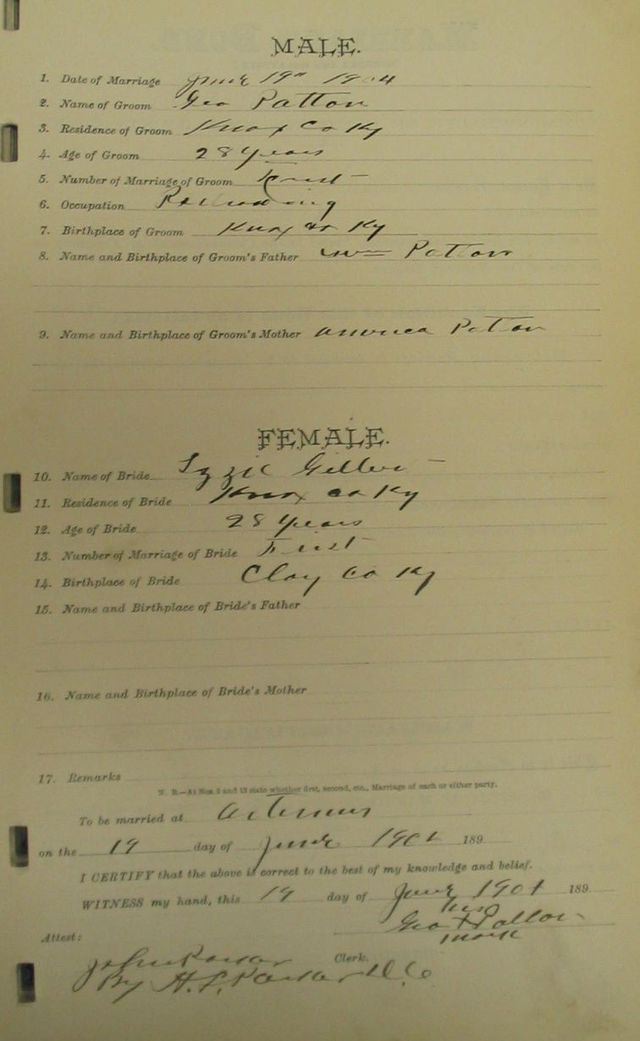 MALE.
1. Date of Marriage June 19th 1904
2. Name of Groom Geo Patton
3. Residence of Groom Knox Co Ky
4. Age of Groom 28 years
5. Number of Marriage of Groom First
6. Occupation Railroading
7. Birthplace of Groom Knox Co Ky
8. Name and Birthplace of Groom's Father Wm Patton
9. Name and Birthplace of Groom's Mother America Patton
FEMALE.
10. Name of Bride Lizzie
11. Residence of Bride Knox Co Ky
12. Age of Bride 28 years
13. Number of Marriage of Bride First
14. Birthplace of Bride Clay Co Ky
15. Name and Birthplace of Bride's Father
16. Name and Birthplace of Bride's Mother
17. Remarks
N. B.—At Nos 5 and 13 state whether first, second, etc., Marriage of each or either party.
To be married at Artemus
on the 19 day of June 1904 189
I CERTIFY that the above is correct to the best of my knowledge and belief.
WITNESS my hand, this 19 day of June 1904 189
his
Geo X Patton
mark
Attest:
John Parker Clerk.
By H. L. Parker D. C.